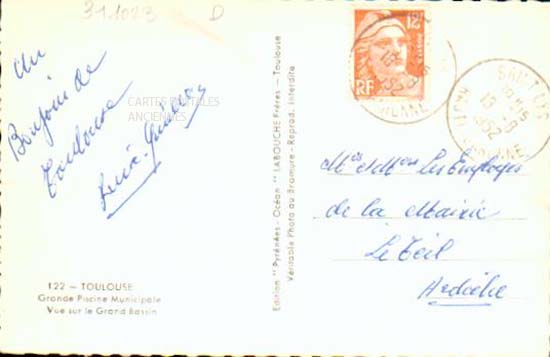 311023 D
Un
Bonjour de
Toulouse
CARTES POSTALES
ANCIENNES
122 — TOULOUSE
Grande Piscine Municipale
Vue sur le Grand Bassin
Edition "Pyrénées - Océan" LABOUCHE Frères — Toulouse
Véritable Photo au Bromure - Reprod. Interdite
12F
RF
13 -8
1952
Mrs et Mmes Les Employés
de la Mairie
Le Teil
Ardèche